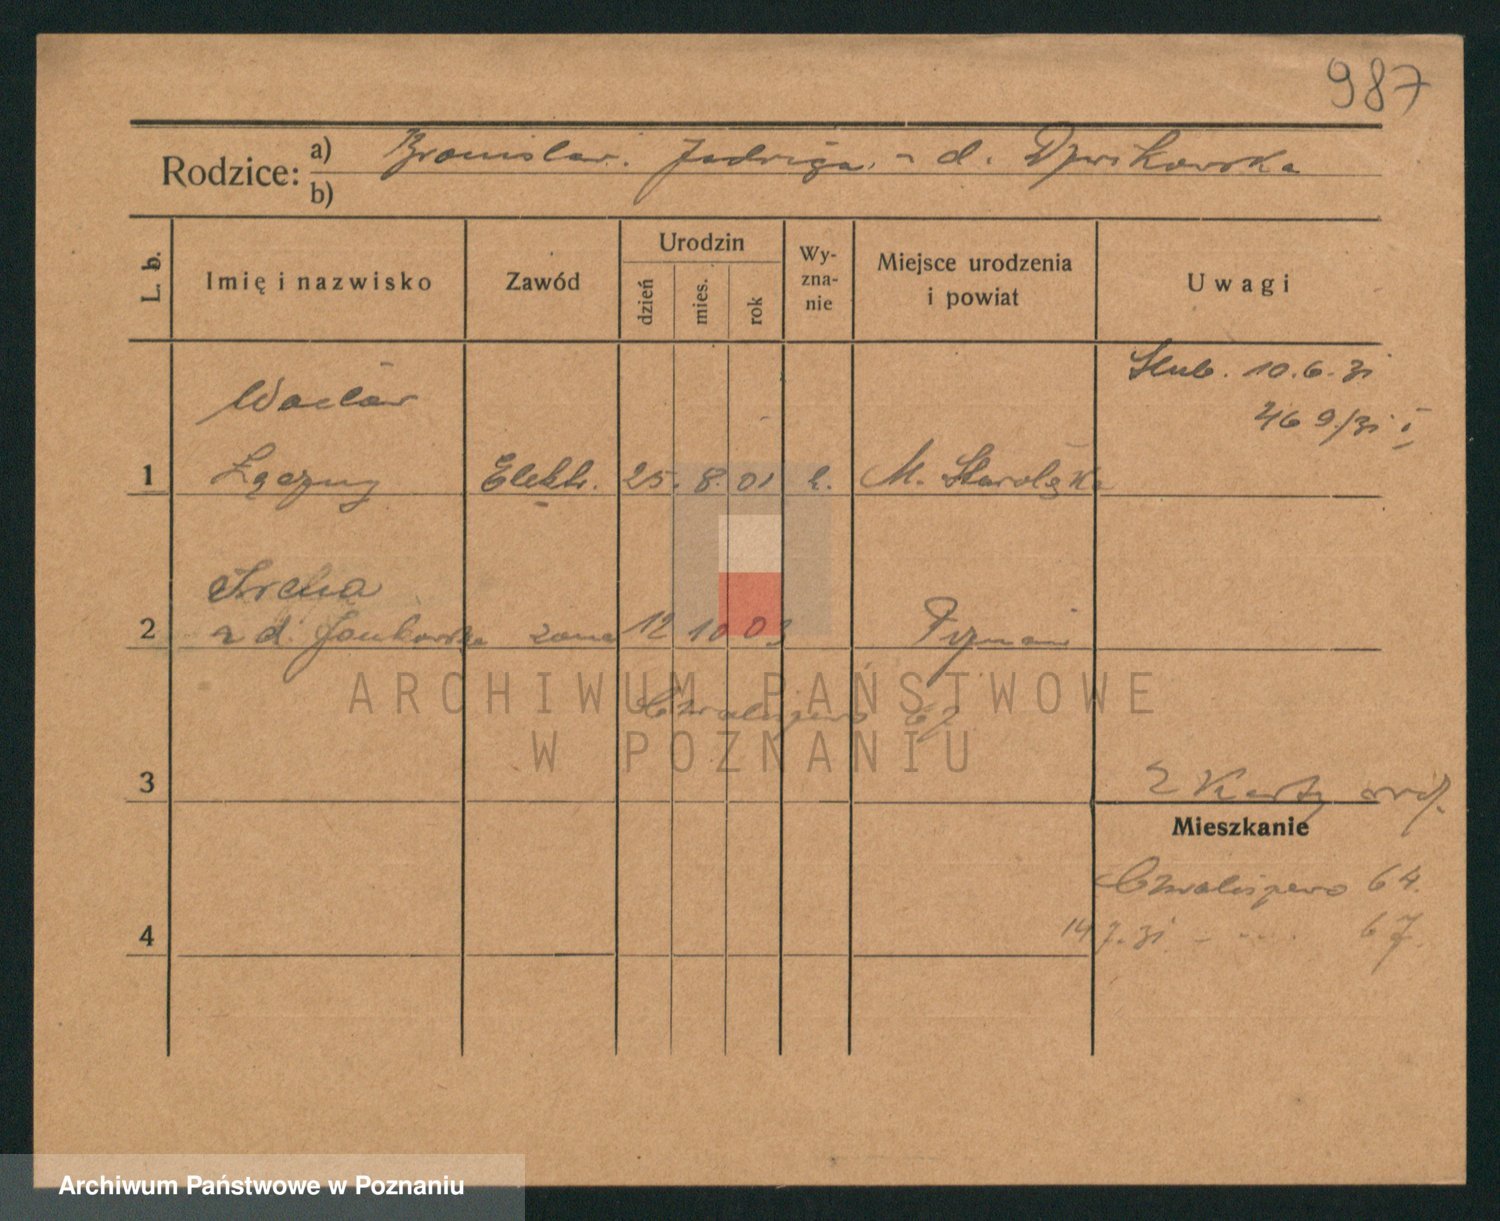 987
Rodzice: a) Bronisław. Jadwiga. z d.
b)
L. b.
Imię i nazwisko
Zawód
Urodzin
dzień
mies.
rok
Wy-
zna-
nie
Miejsce urodzenia
i powiat
Uwagi
Ślub. 10.6.31
469/31 I
Wacław
1 Łączny Elektr. 25. 8. 01 k. M. Starołęka
Irena
2 z d. Jankowska żona 12 10 03 Poznań
Chwaliszewo 67
3
2 Karty
Mieszkanie
Chwaliszewo 64.
4
14 7.31 - " 67.
ARCHIWUM PAŃSTWOWE
W POZNANIU
Archiwum Państwowe w Poznaniu